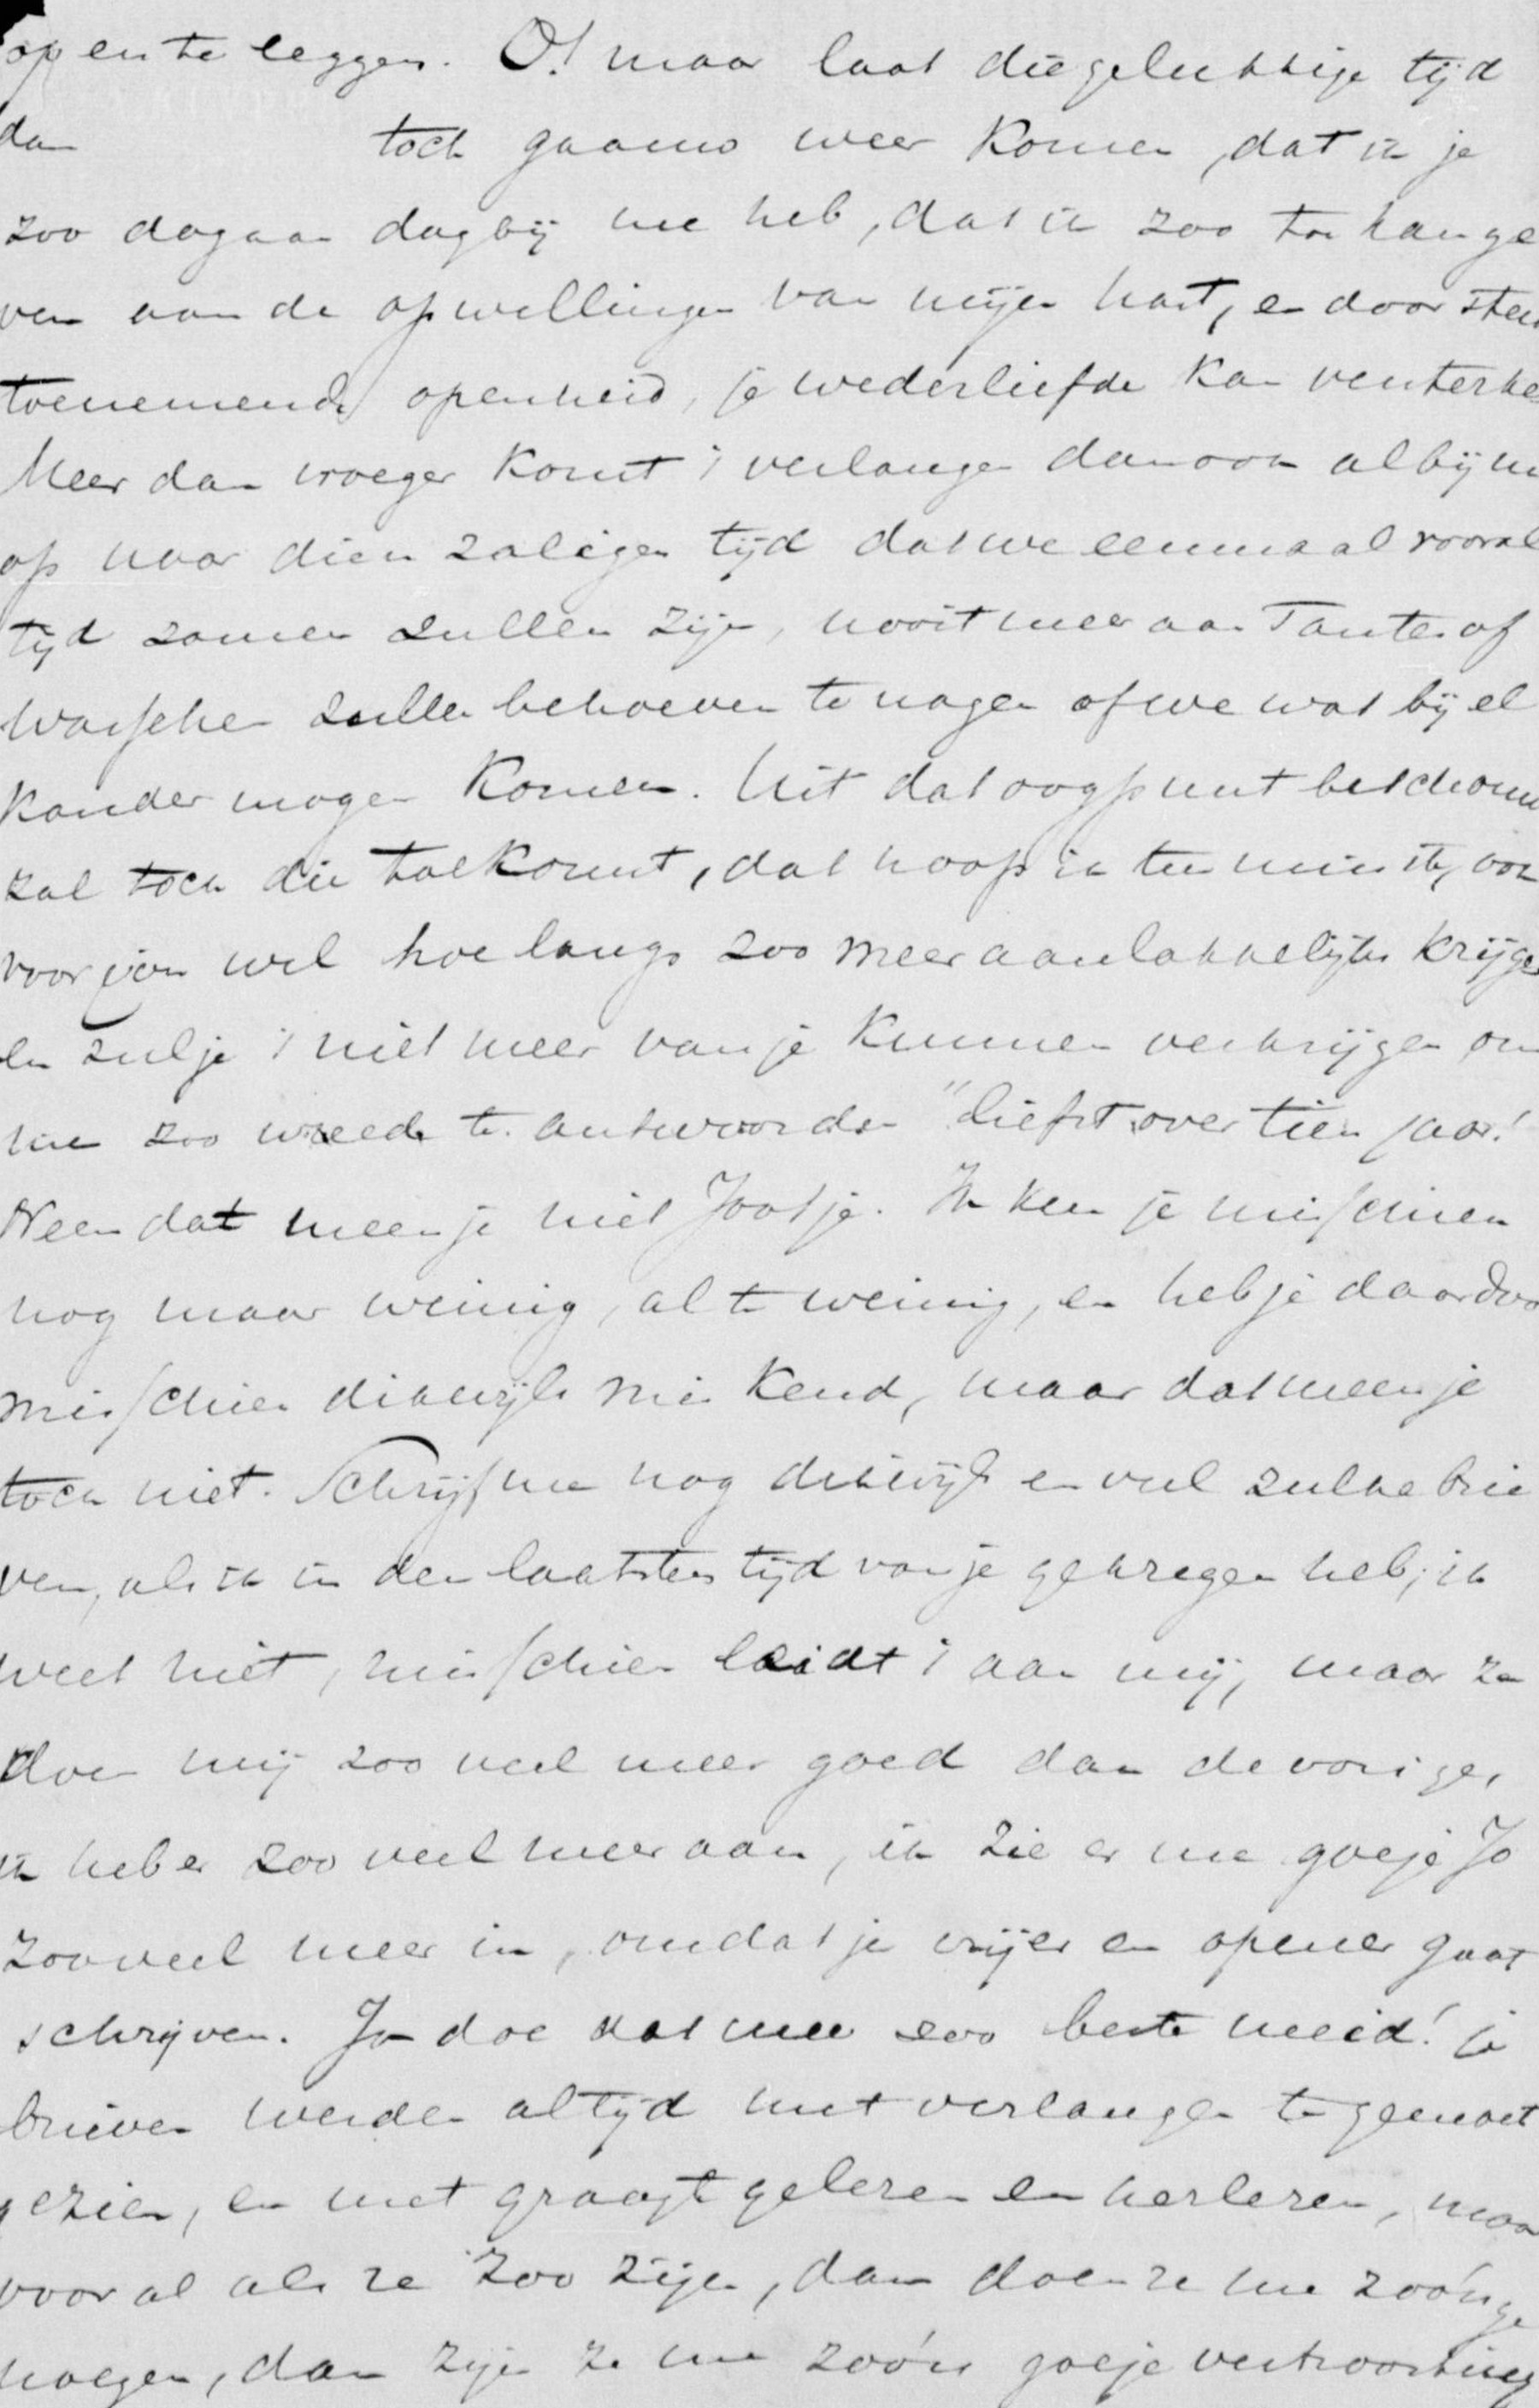 open te leggen. O! maar laat die gelukkige tijd
dan toch gaauw weer komen, dat ik je
zoo dag aan dag bij me heb, dat ik zoo toe kan ge
ven aan de opwellingen van mijn hart, en door steeds
toenemende openheid, je wederliefde kan versterken
Meer dan vroeger komt 't verlangen dan ook al bij me
op naar dien zaligen tijd dat we eenmaal voor al
tijd samen zullen zijn, nooit meer aan Tantes of
zullen behoeven te vragen of we wat bij el
kander mogen komen. Uit dat oogpunt beschouwd
zal toch die toekomst, dat hoop ik ten minste, ook
voor jou wel hoe langs zoo meer aanlokkelijks krijgen
en zul je 't niet meer van je kunnen verkrijgen om
me zoo wreed te antwoorden "liefst over tien jaar!
Neen dat meen je niet Jootje. Ik ken je misschien
nog maar weinig, al te weinig, en heb je daardoor
misschien dikwijls mis kend, maar dat meen je
toch niet. Schrijf me nog dikwijls en veel zulke brie
ven, als ik in den laatsten tijd van je gekregen heb; ik
weet niet, misschien leidt 't aan mij, maar ze
doen mij zoo veel meer goed dan de vorige,
ik heb er zoo veel meer aan, ik zie er me goeje Jo
zooveel meer in, omdat je vrijer en opener gaat
schrijven. Ja doe dat mee zoo beste meid! je
brieven werden altijd met verlangen te gemoet
gezien, en met graagte gelezen en herlezen, maar
vooral als ze zoo zijn, dan doen ze me zoó'n ge
noegen, dan zijn ze me zoó'n goeje vertroosting